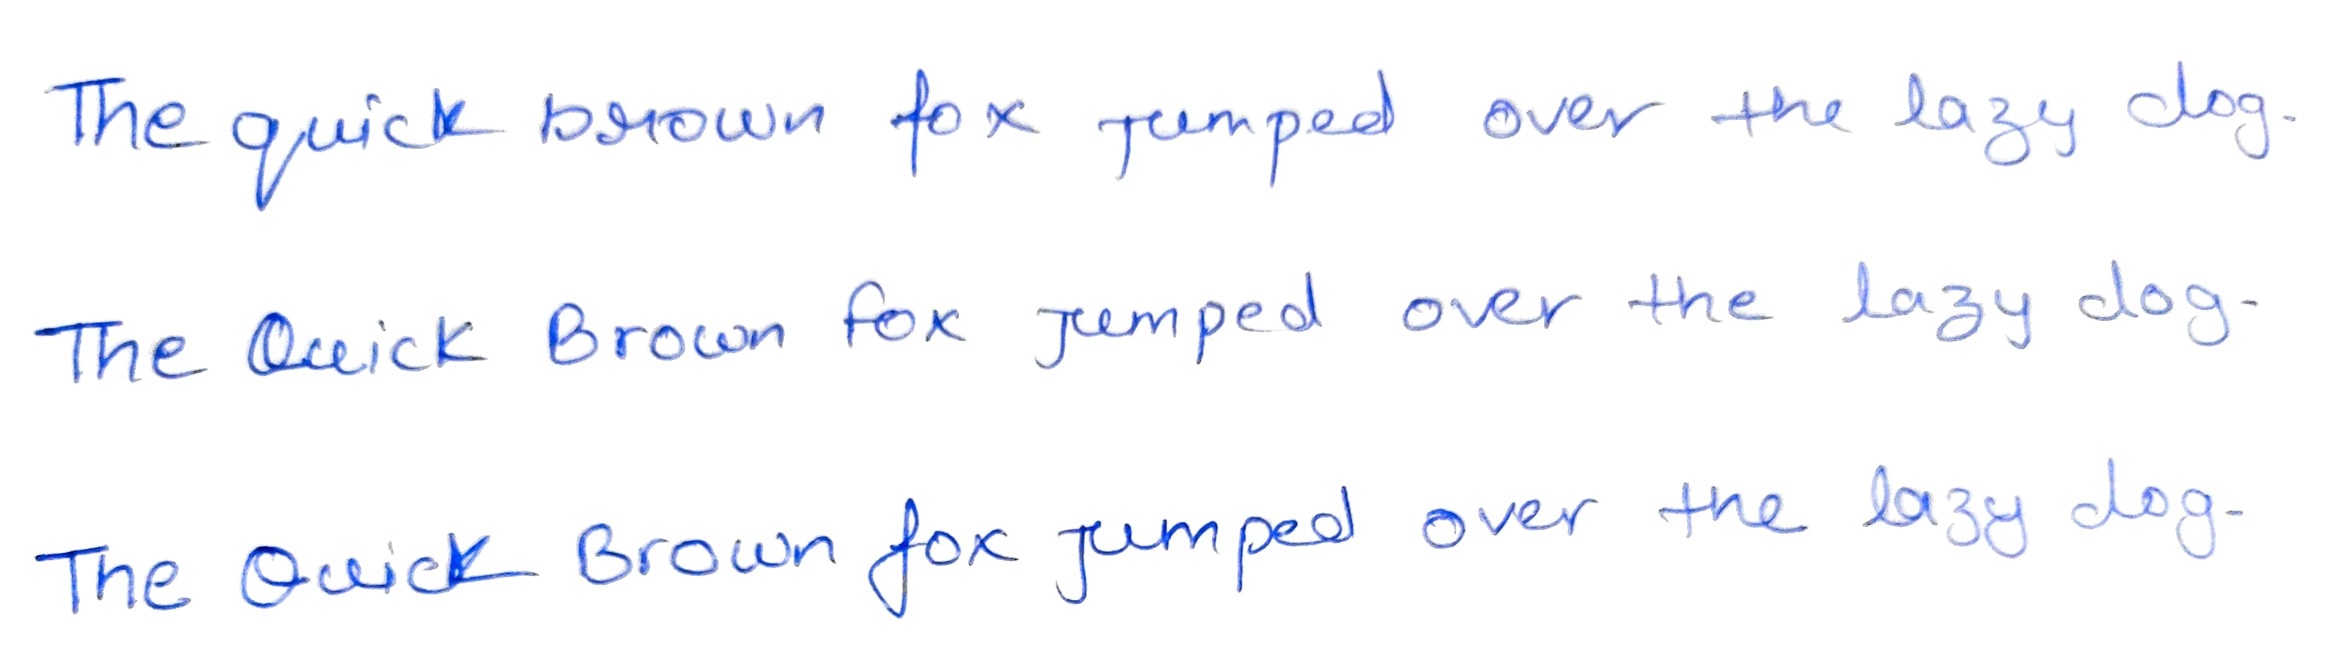 The quick brown fox jumped over the lazy dog.
The Quick Brown fox jumped over the lazy dog.
The Quick Brown fox jumped over the lazy dog.